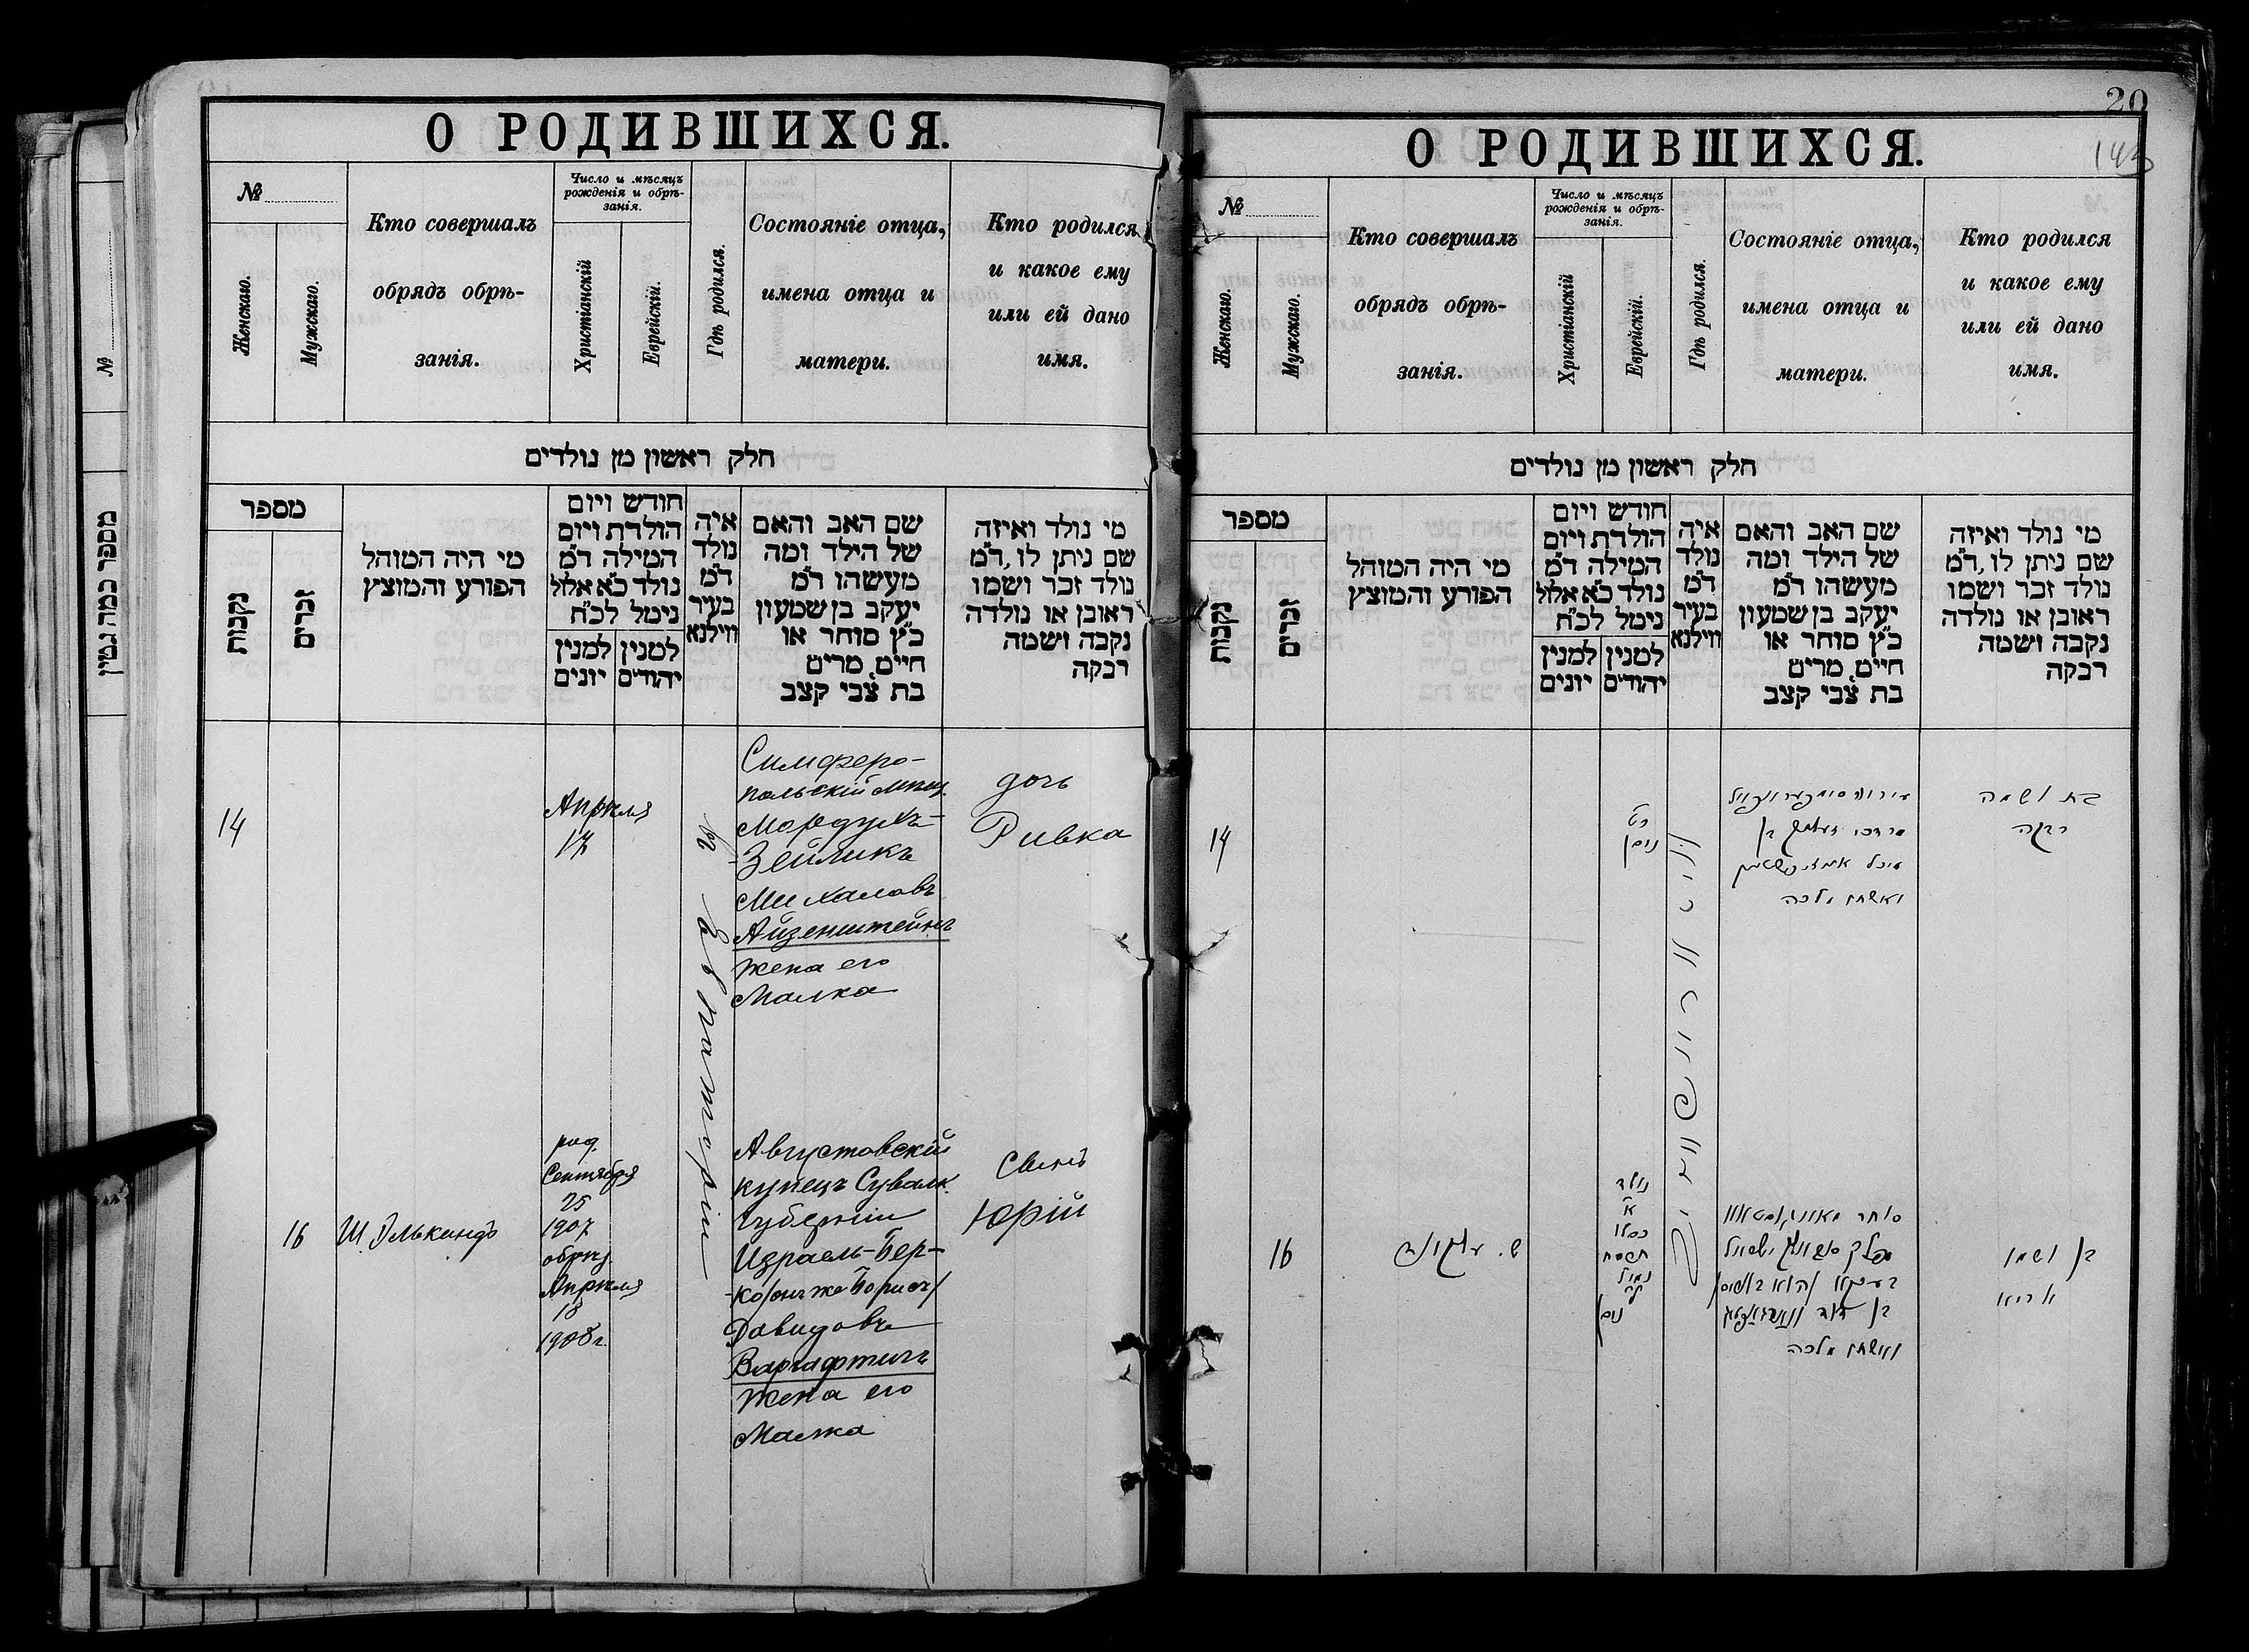 О РОДИВШИХСЯ.
№
Женскаго.
Мужскаго.
Кто совершалъ
обрядъ обрѣ-
занія.
Число и мѣсяцъ
рожденія и обрѣ-
занія.
Христіанскій
Еврейскій.
Гдѣ родился.
Состояніе отца,
имена отца и
матери.
Кто родился
и какое ему
или ей дано
имя.
חלק ראשון מן נולדים
מספר
נקבות
זכרים
מי היה המוהל
הפורע והמוצץ
חודש ויום
הולדת ויום
המילה ד״מ
נולד כ״א אלול
נימל לכ״ח
למנין
יונים
למנין
יהודים
איה
נולד
ד״מ
בעיר
ווילנא
שם האב והאם
של הילד ומה
מעשהו ד״מ
יעקב בן שמעון
כ״ץ סוחר או
חיים, מרים
בת צבי קצב
מי נולד ואיזה
שם ניתן לו, ד״מ
נולד זכר ושמו
ראובן או נולדה
נקבה ושמה
רבקה
14
Апрѣля
17
въ Евпаторіи
Симферо-
польскій мѣщ.
Мордухъ-
-Зейликъ
Михаловъ
Айзенштейнъ
жена его
Малка
дочь
Ривка
16
Ш. Элькиндъ
род.
Сентября
25
1907
обрѣз.
Апрѣля
18
1908 г.
Августовскій
купецъ Сувалк.
губерніи
Израель-Бер-
-ко/онъ же Борисъ/
Давидовъ
Варгафтигъ
жена его
Малка
Сынъ
Юрій
20
143
О РОДИВШИХСЯ.
№
Женскаго.
Мужскаго.
Кто совершалъ
обрядъ обрѣ-
занія.
Число и мѣсяцъ
рожденія и обрѣ-
занія.
Христіанскій
Еврейскій.
Гдѣ родился.
Состояніе отца,
имена отца и
матери.
Кто родился
и какое ему
или ей дано
имя.
חלק ראשון מן נולדים
מספר
נקבות
זכרים
מי היה המוהל
הפורע והמוצץ
חודש ויום
הולדת ויום
המילה ד״מ
נולד כ״א אלול
נימל לכ״ח
למנין
יונים
למנין
יהודים
איה
נולד
ד״מ
בעיר
ווילנא
שם האב והאם
של הילד ומה
מעשהו ד״מ
יעקב בן שמעון
כ״ץ סוחר או
חיים, מרים
בת צבי קצב
מי נולד ואיזה
שם ניתן לו, ד״מ
נולד זכר ושמו
ראובן או נולדה
נקבה ושמה
רבקה
14
ניסן
מרדכי זעליג בן
מיכל אייזנשטיין
ואשתו מלכה
בת ושמה
רבקה
16
ש. עלקינד
נולד
נמול
ניסן
בן דוד ווארהאפטיג
ואשתו מלכה
בן ושמו